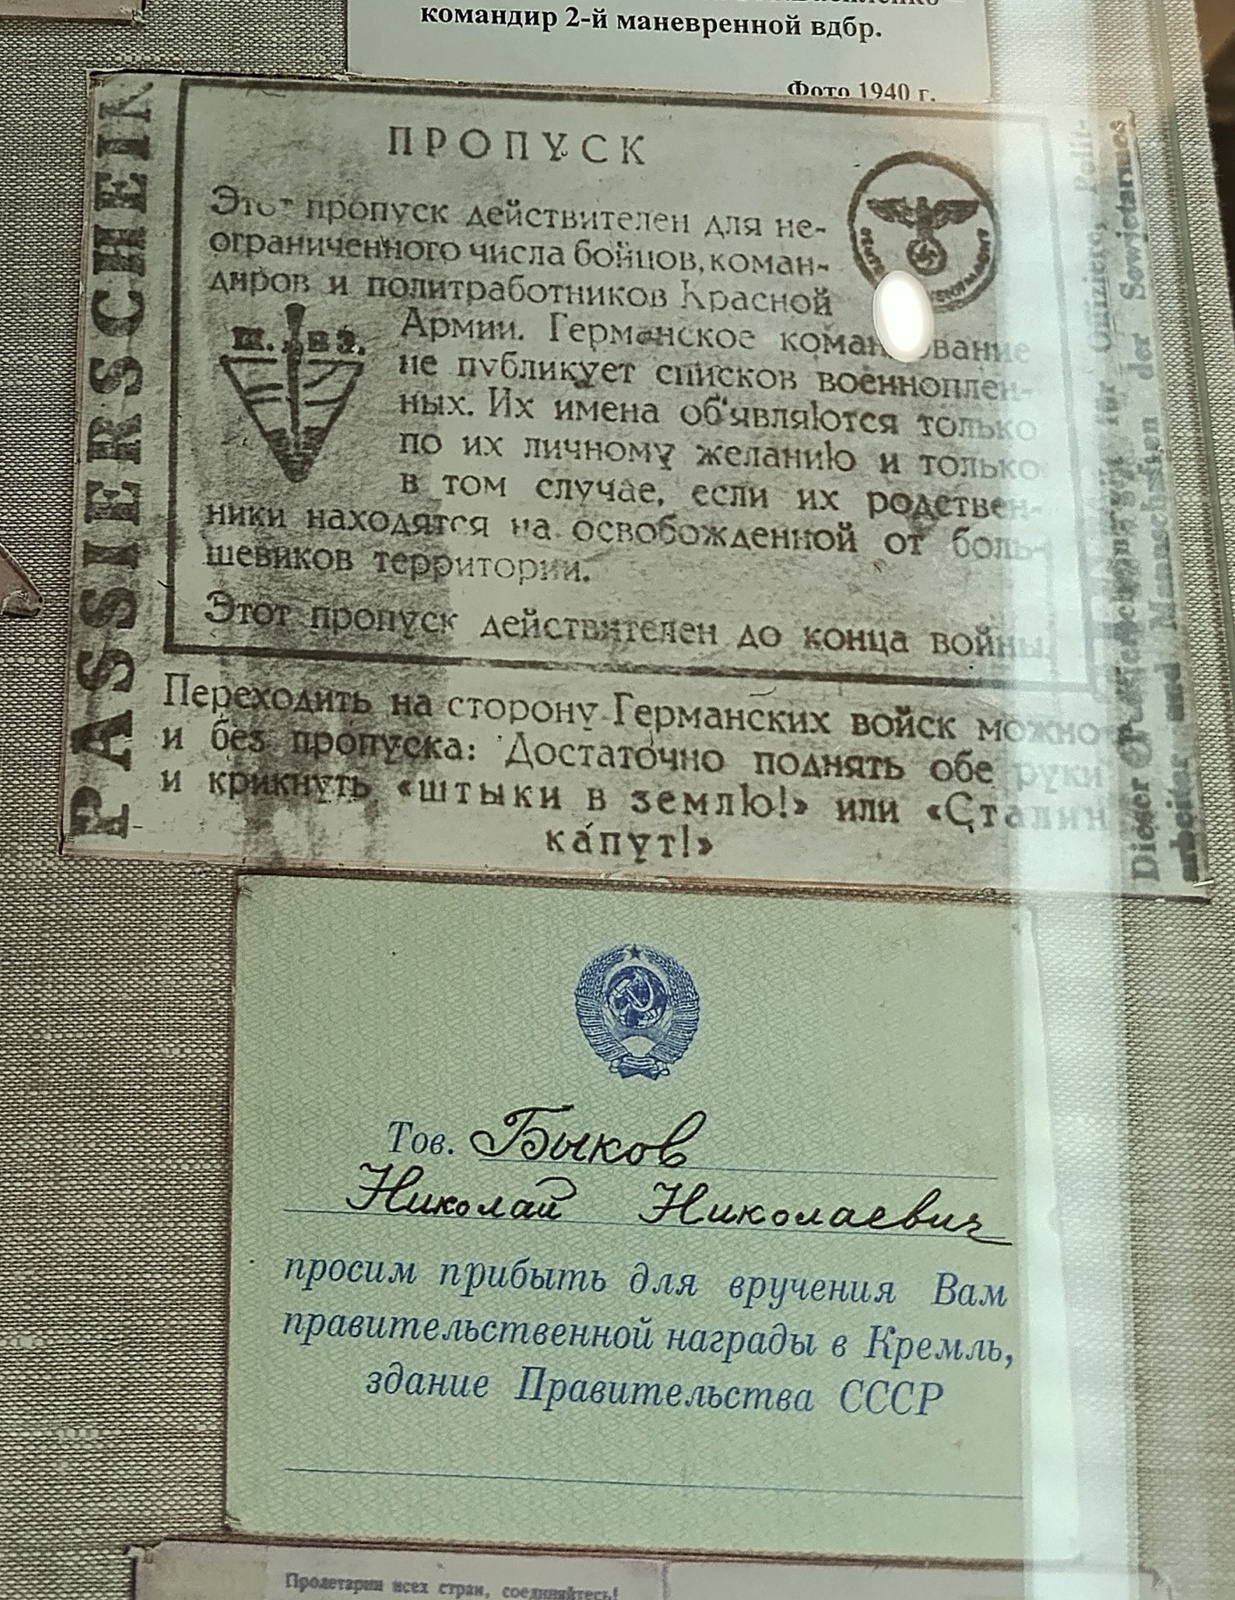 командир 2-й маневренной вдбр.
Фото 1940 г.
PASSIERSCHEIN
ПРОПУСК
Этот пропуск действителен для не-
ограниченного числа бойцов, коман-
диров и политработников Красной
Армии. Германское командование
не публикует списков военноплен-
ных. Их имена об'являются только
по их личному желанию и только
в том случае, если их родствен-
ники находятся на освобожденной от боль-
шевиков территории.
Ш. ВЗ.
Этот пропуск действителен до конца войны
Переходить на сторону Германских войск можно
и без пропуска: Достаточно поднять обе руки
и крикнуть «штыки в землю!» или «Сталин
капут!»
Dieser für Offiziere, Polit-
arbeiter und Mannschaften der Sowjetarmee
Тов. Быков
Николай Николаевич
просим прибыть для вручения Вам
правительственной награды в Кремль,
здание Правительства СССР
Пролетарии всех стран, соединяйтесь!